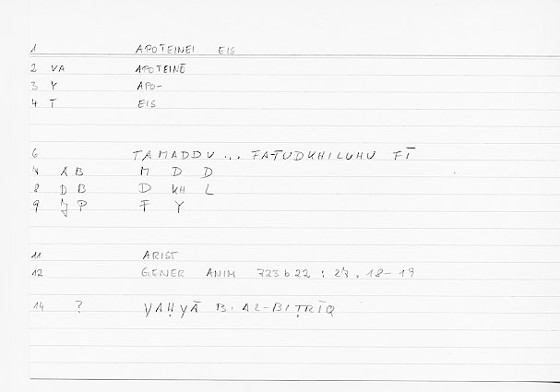 1 APOTEINEI EIS
2 VA APOTEINĒ
3 Y APO-
4 T EIS
6 TAMADDU ... FATUDKHILUHU FĪ
7 AB M D D
8 DB D KH L
9 JP F Y
11 ARIST
12 GENER ANIM 723b22 : 27, 18-19
14 ? YAḤYĀ B. AL-BIṬRĪQ